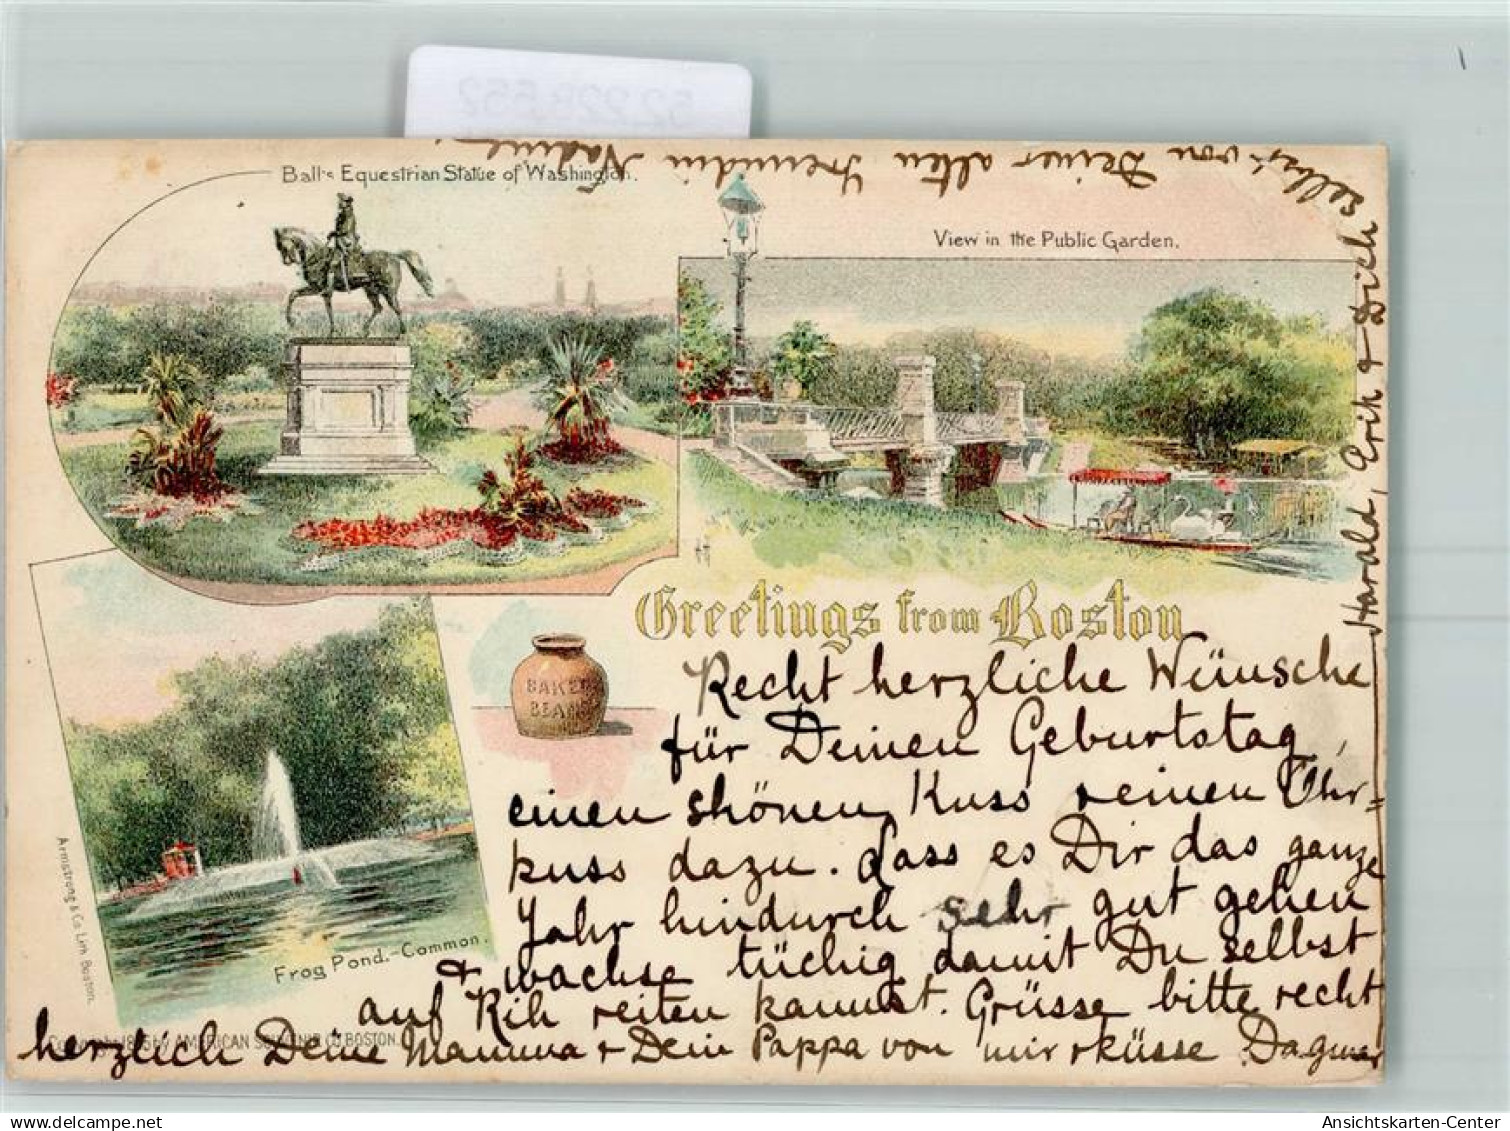 52.228.552
Ball's Equestrian Statue of Washington.
View in the Public Garden.
Greetings from Boston
BAKED
BEANS
Frog Pond.-Common.
Armstrong & Co. Lith. Boston.
Copyright 1895 by AMERICAN SOUVENIR CO. BOSTON.
Recht herzliche Wünsche
für Deinen Geburtstag,
einen shönen Kuss & einen Ohr=
kuss dazu. Lass es Dir das ganze
Jahr hindurch sehr gut gehen
& wachse tüchig damit Du selbst
auf Rih reiten kannst. Grüsse bitte recht
herzlich Deine Mamma & Dein Pappa von mir & küsse Dagmar
Harald, Erik & Dich
selbst von Deiner alten Freundin Nadine
Ansichtskarten-Center